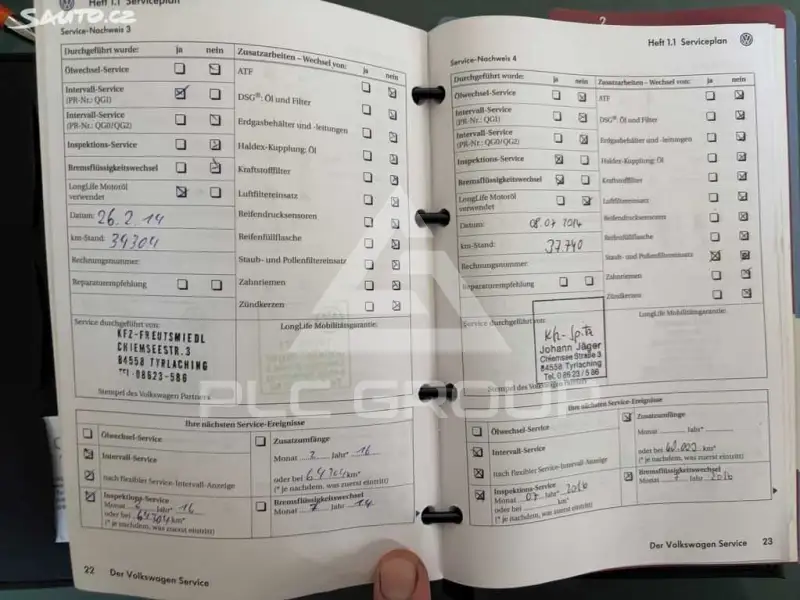 SAUTO.CZ
Heft 1.1 Serviceplan
Service-Nachweis 3
Durchgeführt wurde: ja nein
Ölwechsel-Service
Intervall-Service
(PR-Nr.: QG1)
Intervall-Service
(PR-Nr.: QG0/QG2)
Inspektions-Service
Bremsflüssigkeitswechsel
LongLife Motoröl
verwendet
Datum: 26.2.14
km-Stand: 34304
Rechnungsnummer:
Reparaturempfehlung
Zusatzarbeiten – Wechsel von: ja nein
ATF
DSG®: Öl und Filter
Erdgasbehälter und -leitungen
Haldex-Kupplung: Öl
Kraftstofffilter
Luftfiltereinsatz
Reifendrucksensoren
Reifenfüllflasche
Staub- und Pollenfiltereinsatz
Zahnriemen
Zündkerzen
Service durchgeführt von:
KFZ-FREUTSMIEDL
CHIEMSEESTR.3
84558 TYRLACHING
TEL. 08623-586
Stempel des Volkswagen Partners
LongLife Mobilitätsgarantie:
Ihre nächsten Service-Ereignisse
Ölwechsel-Service
Intervall-Service
nach flexibler Service-Intervall-Anzeige
Inspektions-Service
Monat 2 Jahr* 16
oder bei 64304 km*
(* je nachdem, was zuerst eintritt)
Zusatzumfänge
Monat 2 Jahr* 16
oder bei 64304 km*
(* je nachdem, was zuerst eintritt)
Bremsflüssigkeitswechsel
Monat 7 Jahr 14
22 Der Volkswagen Service
Heft 1.1 Serviceplan
Service-Nachweis 4
Durchgeführt wurde: ja nein
Ölwechsel-Service
Intervall-Service
(PR-Nr.: QG1)
Intervall-Service
(PR-Nr.: QG0/QG2)
Inspektions-Service
Bremsflüssigkeitswechsel
LongLife Motoröl
verwendet
Datum: 08.07 2014
km-Stand: 37.740
Rechnungsnummer:
Reparaturempfehlung
Zusatzarbeiten – Wechsel von: ja nein
ATF
DSG®: Öl und Filter
Erdgasbehälter und -leitungen
Haldex-Kupplung: Öl
Kraftstofffilter
Luftfiltereinsatz
Reifendrucksensoren
Reifenfüllflasche
Staub- und Pollenfiltereinsatz
Zahnriemen
Zündkerzen
Service durchgeführt von:
Johann Jäger
Chiemsee Straße 3
84558 Tyrlaching
Tel. 08623 / 586
Stempel des Volkswagen Partners
LongLife Mobilitätsgarantie:
PLC GROUP
Ihre nächsten Service-Ereignisse
Ölwechsel-Service
Intervall-Service
nach flexibler Service-Intervall-Anzeige
Inspektions-Service
Monat 07 Jahr* 2016
oder bei km*
(* je nachdem, was zuerst eintritt)
Zusatzumfänge
Monat Jahr*
oder bei 60.000 km*
(* je nachdem, was zuerst eintritt)
Bremsflüssigkeitswechsel
Monat 7 Jahr 2016
Der Volkswagen Service 23